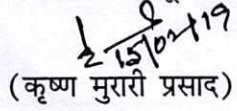 15/04/19
(कृष्ण मुरारी प्रसाद)